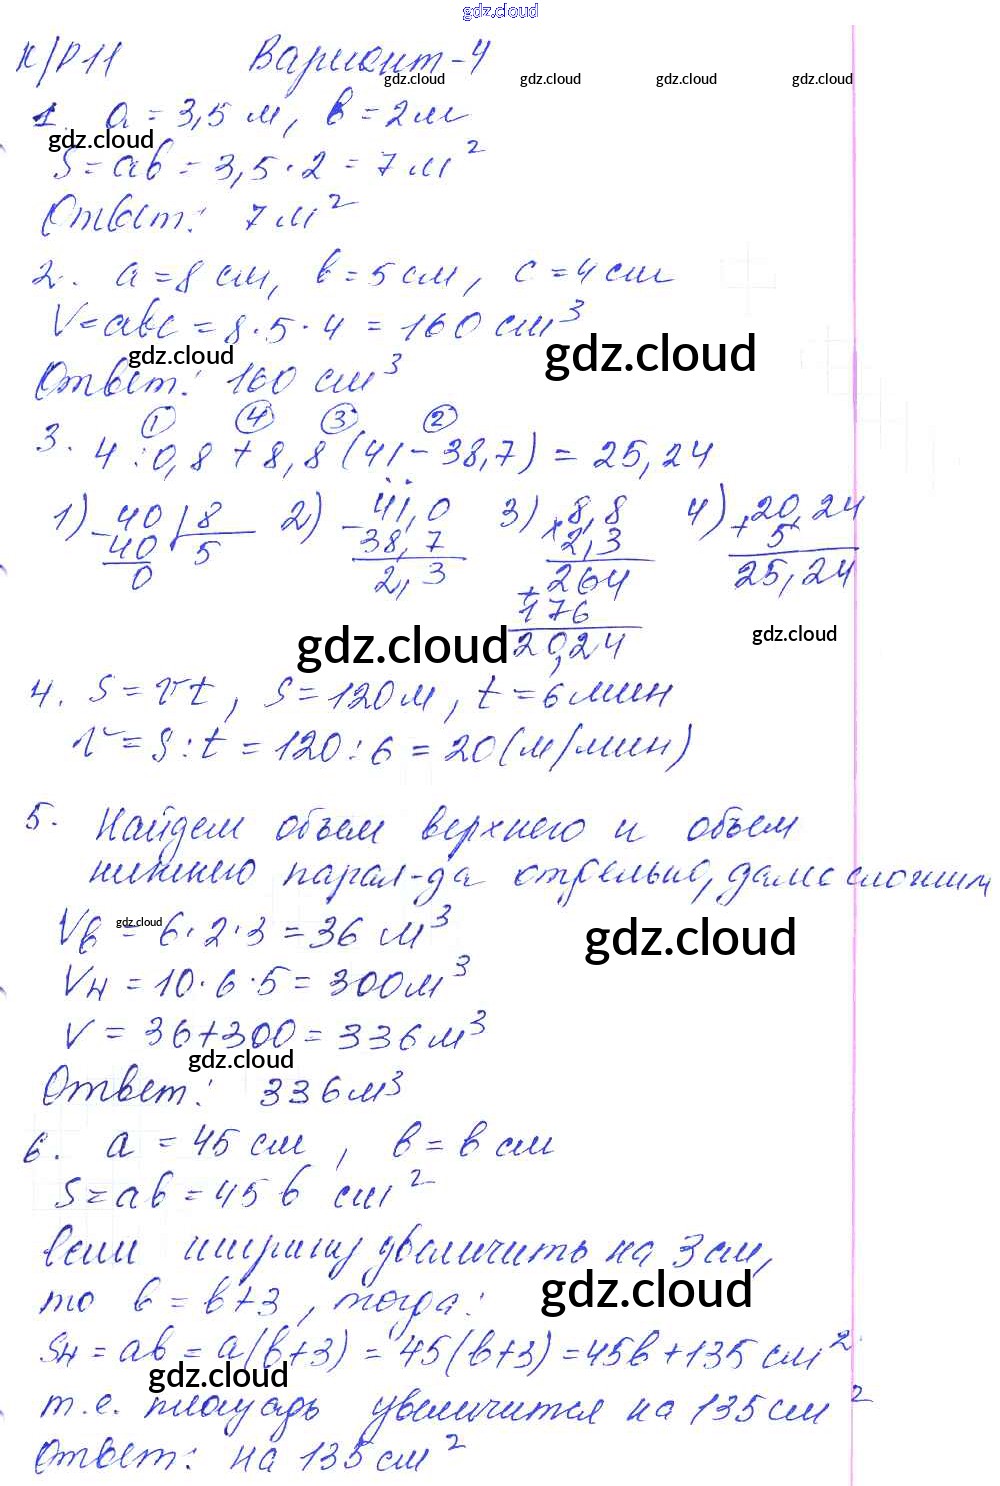 gdz.cloud
К/Р 11 Вариант-4
gdz.cloud gdz.cloud gdz.cloud gdz.cloud
1. a = 3,5 м, b = 2 м
gdz.cloud
S = ab = 3,5 · 2 = 7 м²
Ответ: 7 м²
2. a = 8 см, b = 5 см, c = 4 см
V = abc = 8 · 5 · 4 = 160 см³
gdz.cloud gdz.cloud
Ответ: 160 см³
① ④ ③ ②
3. 4 : 0,8 + 8,8 (41 - 38,7) = 25,24
1) 40 | 8 2) 41,0 3) 8,8 4) 20,24
- 40 5 - 38,7 × 2,3 + 5
0 2,3 + 264 25,24
176
gdz.cloud 20,24 gdz.cloud
4. S = vt, S = 120 м, t = 6 мин
v = S : t = 120 : 6 = 20 (м/мин)
5. Найдем объем верхнего и объем
нижнего парал-да отдельно, далее сложим
gdz.cloud gdz.cloud
Vв = 6 · 2 · 3 = 36 м³
Vн = 10 · 6 · 5 = 300 м³
V = 36 + 300 = 336 м³
gdz.cloud
Ответ: 336 м³
6. a = 45 см, b = b см
S = ab = 45 b см²
если ширину увеличить на 3 см,
gdz.cloud
то b = b + 3, тогда:
Sн = ab = a(b+3) = 45(b+3) = 45b + 135 см²
gdz.cloud
т.е. площадь увеличится на 135 см²
Ответ: на 135 см²